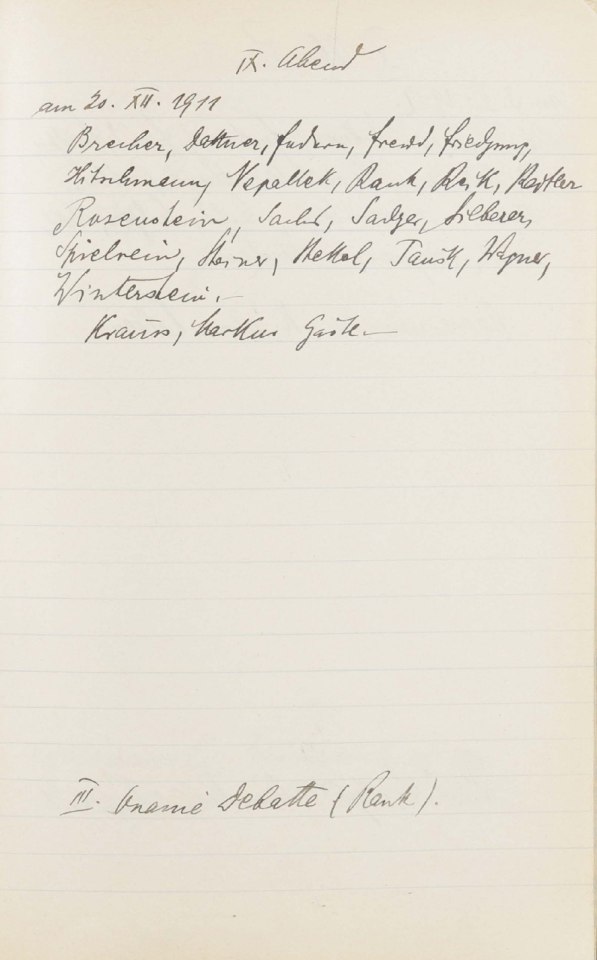 IX. Abend
am 20. XII. 1911
Brecher, Dattner, Federn, Freud, Friedjung,
Hitschmann, Nepallek, Rank, Reik, Reitler
Rosenstein, Sachs, Sadger, Silberer,
Spielrein, Steiner, Stekel, Tausk, Wagner,
Winterstein.–
Krauss, Markus Gäste.–
III. Onanie Debatte (Rank).